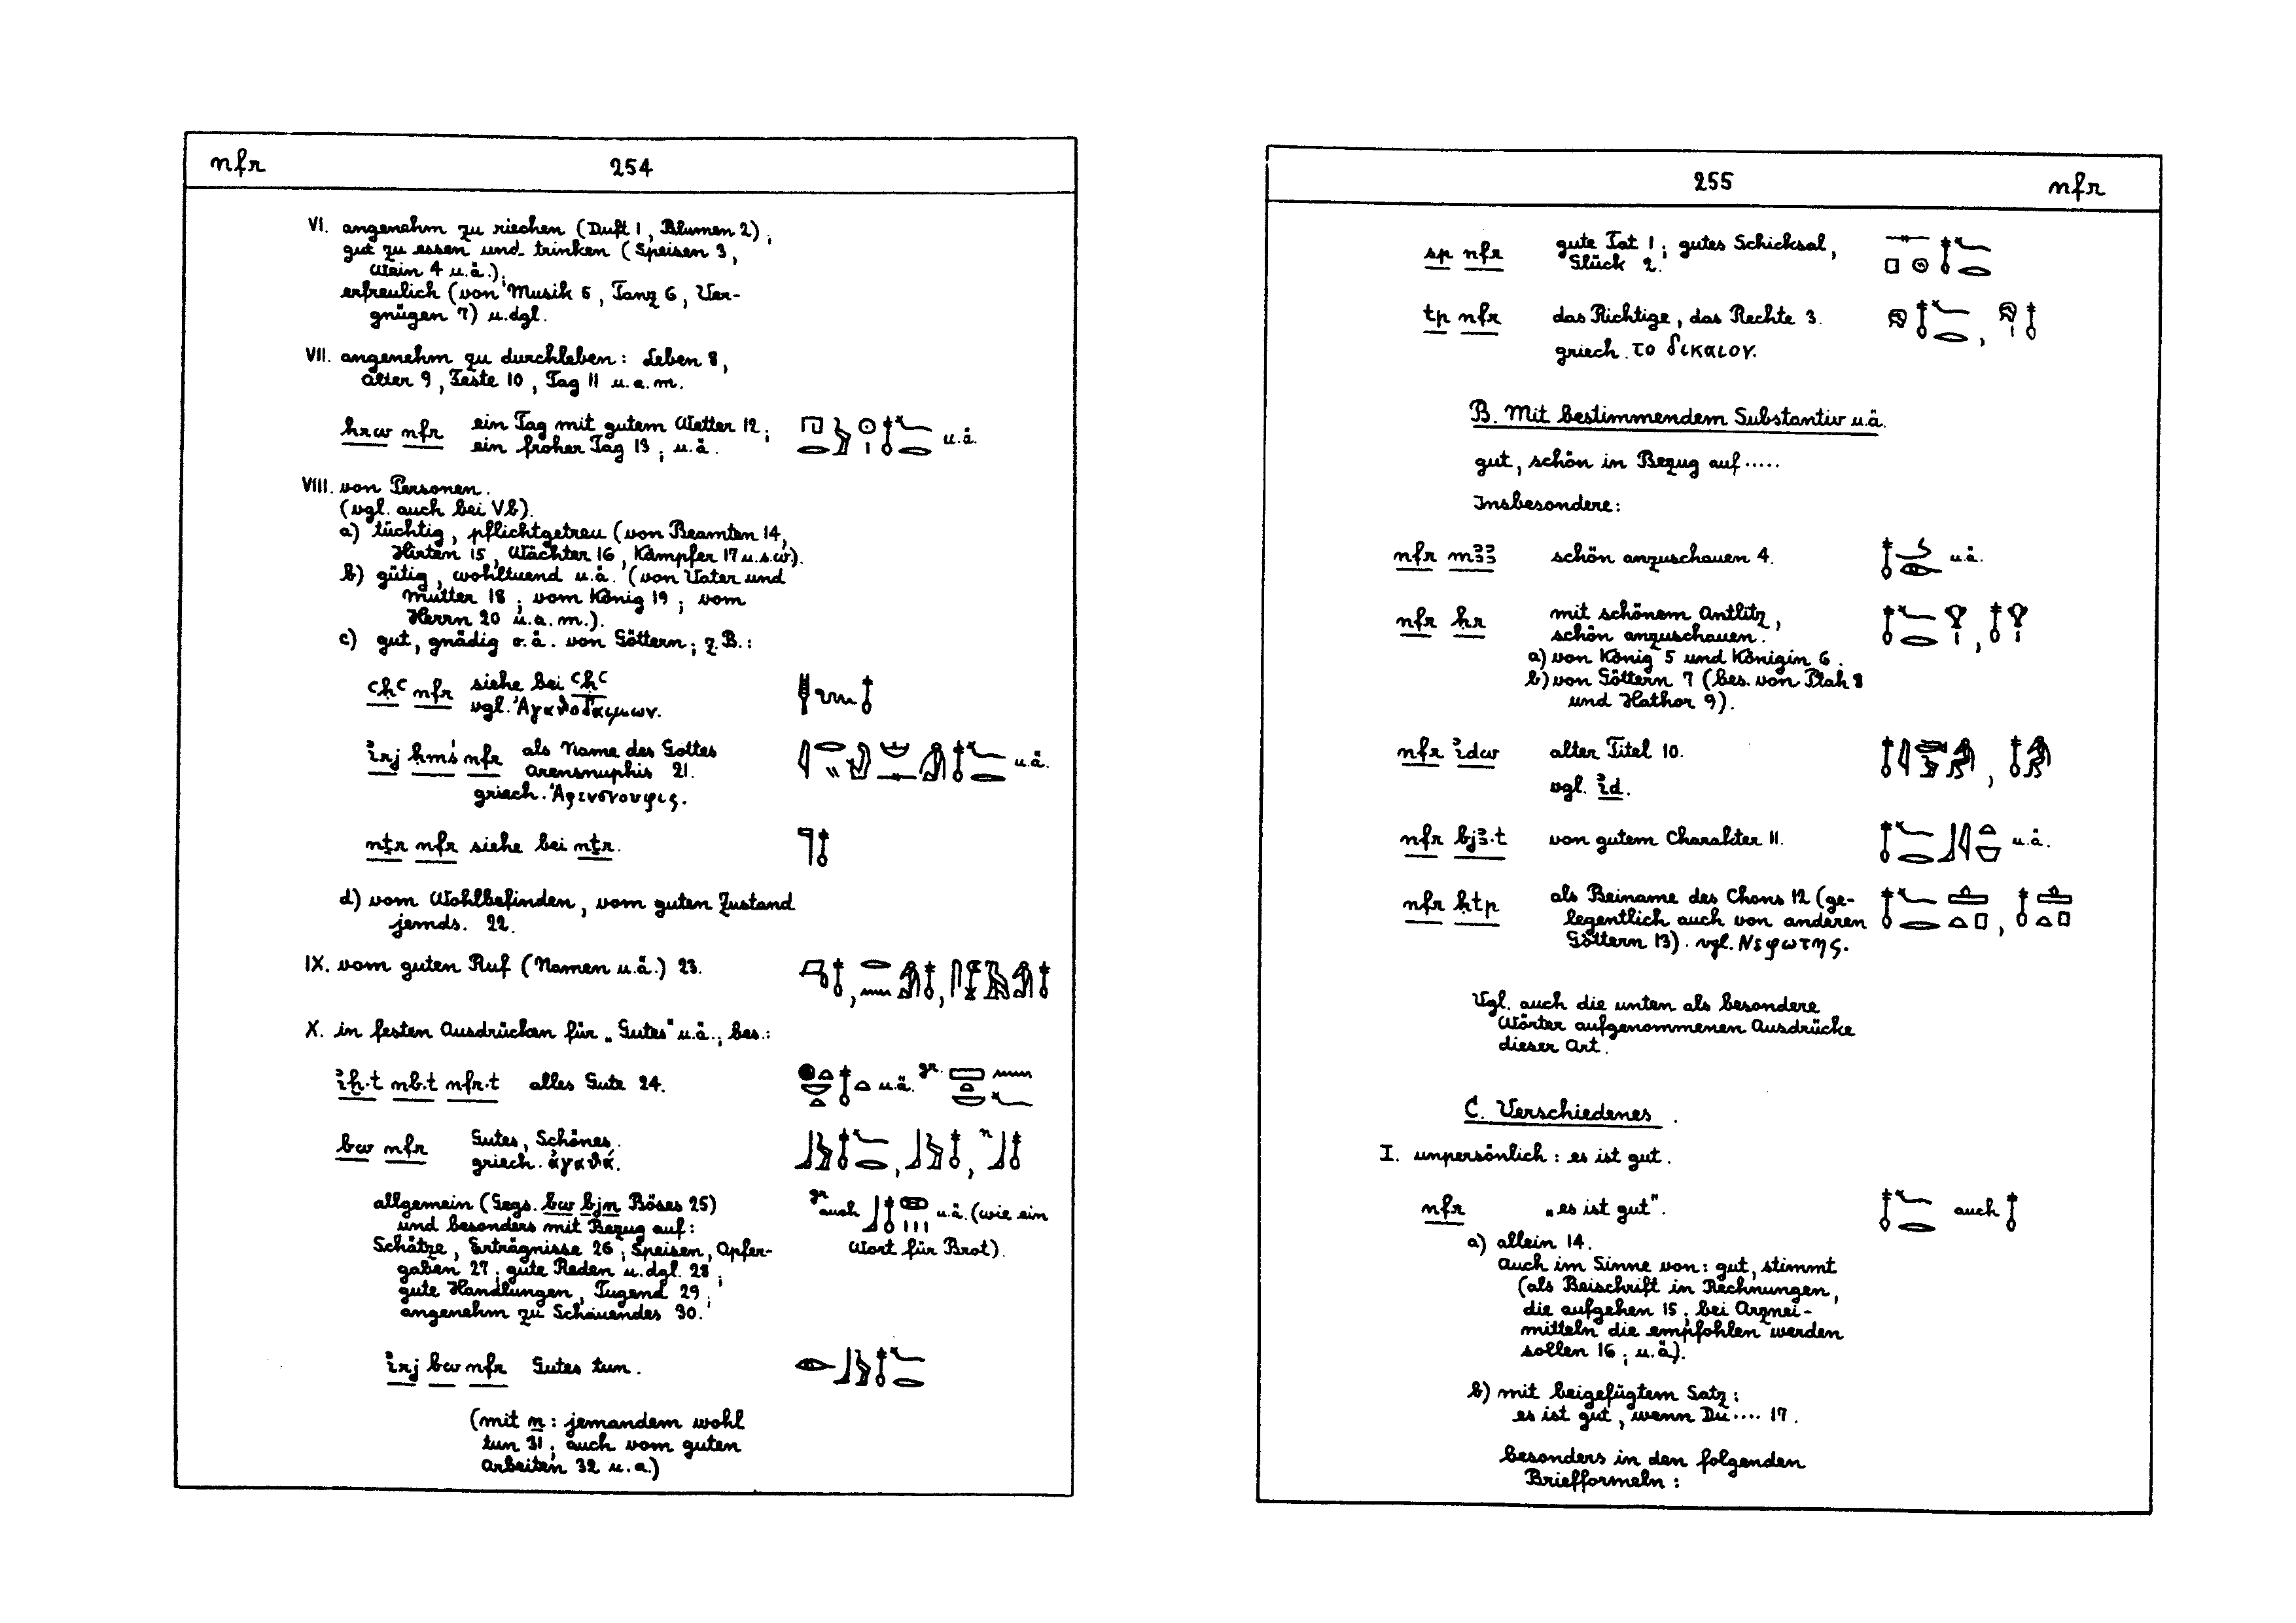 nfr 254
VI. angenehm zu riechen (Duft 1, Blumen 2);
gut zu essen und trinken (Speisen 3,
Wein 4 u.ä.);
erfreulich (von Musik 5, Tanz 6, Ver-
gnügen 7) u.dgl.
VII. angenehm zu durchleben: Leben 8,
Alter 9, Feste 10, Tag 11 u.a.m.
hrw nfr ein Tag mit gutem Wetter 12; u.ä.
ein froher Tag 13; u.ä.
VIII. von Personen.
(vgl. auch bei Vb).
a) tüchtig, pflichtgetreu (von Beamten 14,
Hirten 15, Wächter 16, Kämpfer 17 u.s.w).
b) gütig, wohltuend u.ä. (von Vater und
Mutter 18; vom König 19; vom
Herrn 20 u.a.m.).
c) gut, gnädig o.ä. von Göttern; z.B.:
ꜥḥꜥ nfr siehe bei ꜥḥꜥ
vgl. Ἀγαθοδαίμων.
ꞽrj ḥmś nfr als Name des Gottes u.ä.
Arensnuphis 21.
griech. Ἀρενσνουφις.
nṯr nfr siehe bei nṯr.
d) vom Wohlbefinden, vom guten Zustand
jemds. 22.
IX. vom guten Ruf (Namen u.ä.) 23.
X. in festen Ausdrücken für „Gutes" u.ä., bes.:
ꞽḫ.t nb.t nfr.t alles Gute 24. u.ä. gr.
bw nfr Gutes, Schönes.
griech. ἀγαθά.
allgemein (Gegs. bw bjn Böses 25)
und besonders mit Bezug auf:
Schätze, Erträgnisse 26; Speisen, Opfer-
gaben 27; gute Reden u.dgl. 28;
gute Handlungen, Tugend 29;
angenehm zu Schauendes 30.
gr. auch u.ä. (wie ein
Wort für Brot).
ꞽrj bw nfr Gutes tun.
(mit n: jemandem wohl
tun 31; auch vom guten
Arbeiten 32 u.a.)
255 nfr
sp nfr gute Tat 1; gutes Schicksal,
Glück 2.
tp nfr das Richtige, das Rechte 3.
griech. το δικαιον.
B. Mit bestimmendem Substantiv u.ä.
gut, schön in Bezug auf.....
Insbesondere:
nfr mꜣꜣ schön anzuschauen 4. u.ä.
nfr ḥr mit schönem Antlitz,
schön anzuschauen.
a) von König 5 und Königin 6.
b) von Göttern 7 (bes. von Ptah 8
und Hathor 9).
nfr ꞽdw alter Titel 10.
vgl. ꞽd.
nfr bjꜣ.t von gutem Charakter 11. u.ä.
nfr ḥtp als Beiname des Chons 12 (ge-
legentlich auch von anderen
Göttern 13). vgl. Νεφωτης.
Vgl. auch die unten als besondere
Wörter aufgenommenen Ausdrücke
dieser Art.
C. Verschiedenes.
I. unpersönlich: es ist gut.
nfr „es ist gut". auch
a) allein 14.
Auch im Sinne von: gut, stimmt
(als Beischrift in Rechnungen,
die aufgehen 15; bei Arznei-
mitteln die empfohlen werden
sollen 16; u.ä.).
b) mit beigefügtem Satz:
es ist gut, wenn Du.... 17.
besonders in den folgenden
Briefformeln: